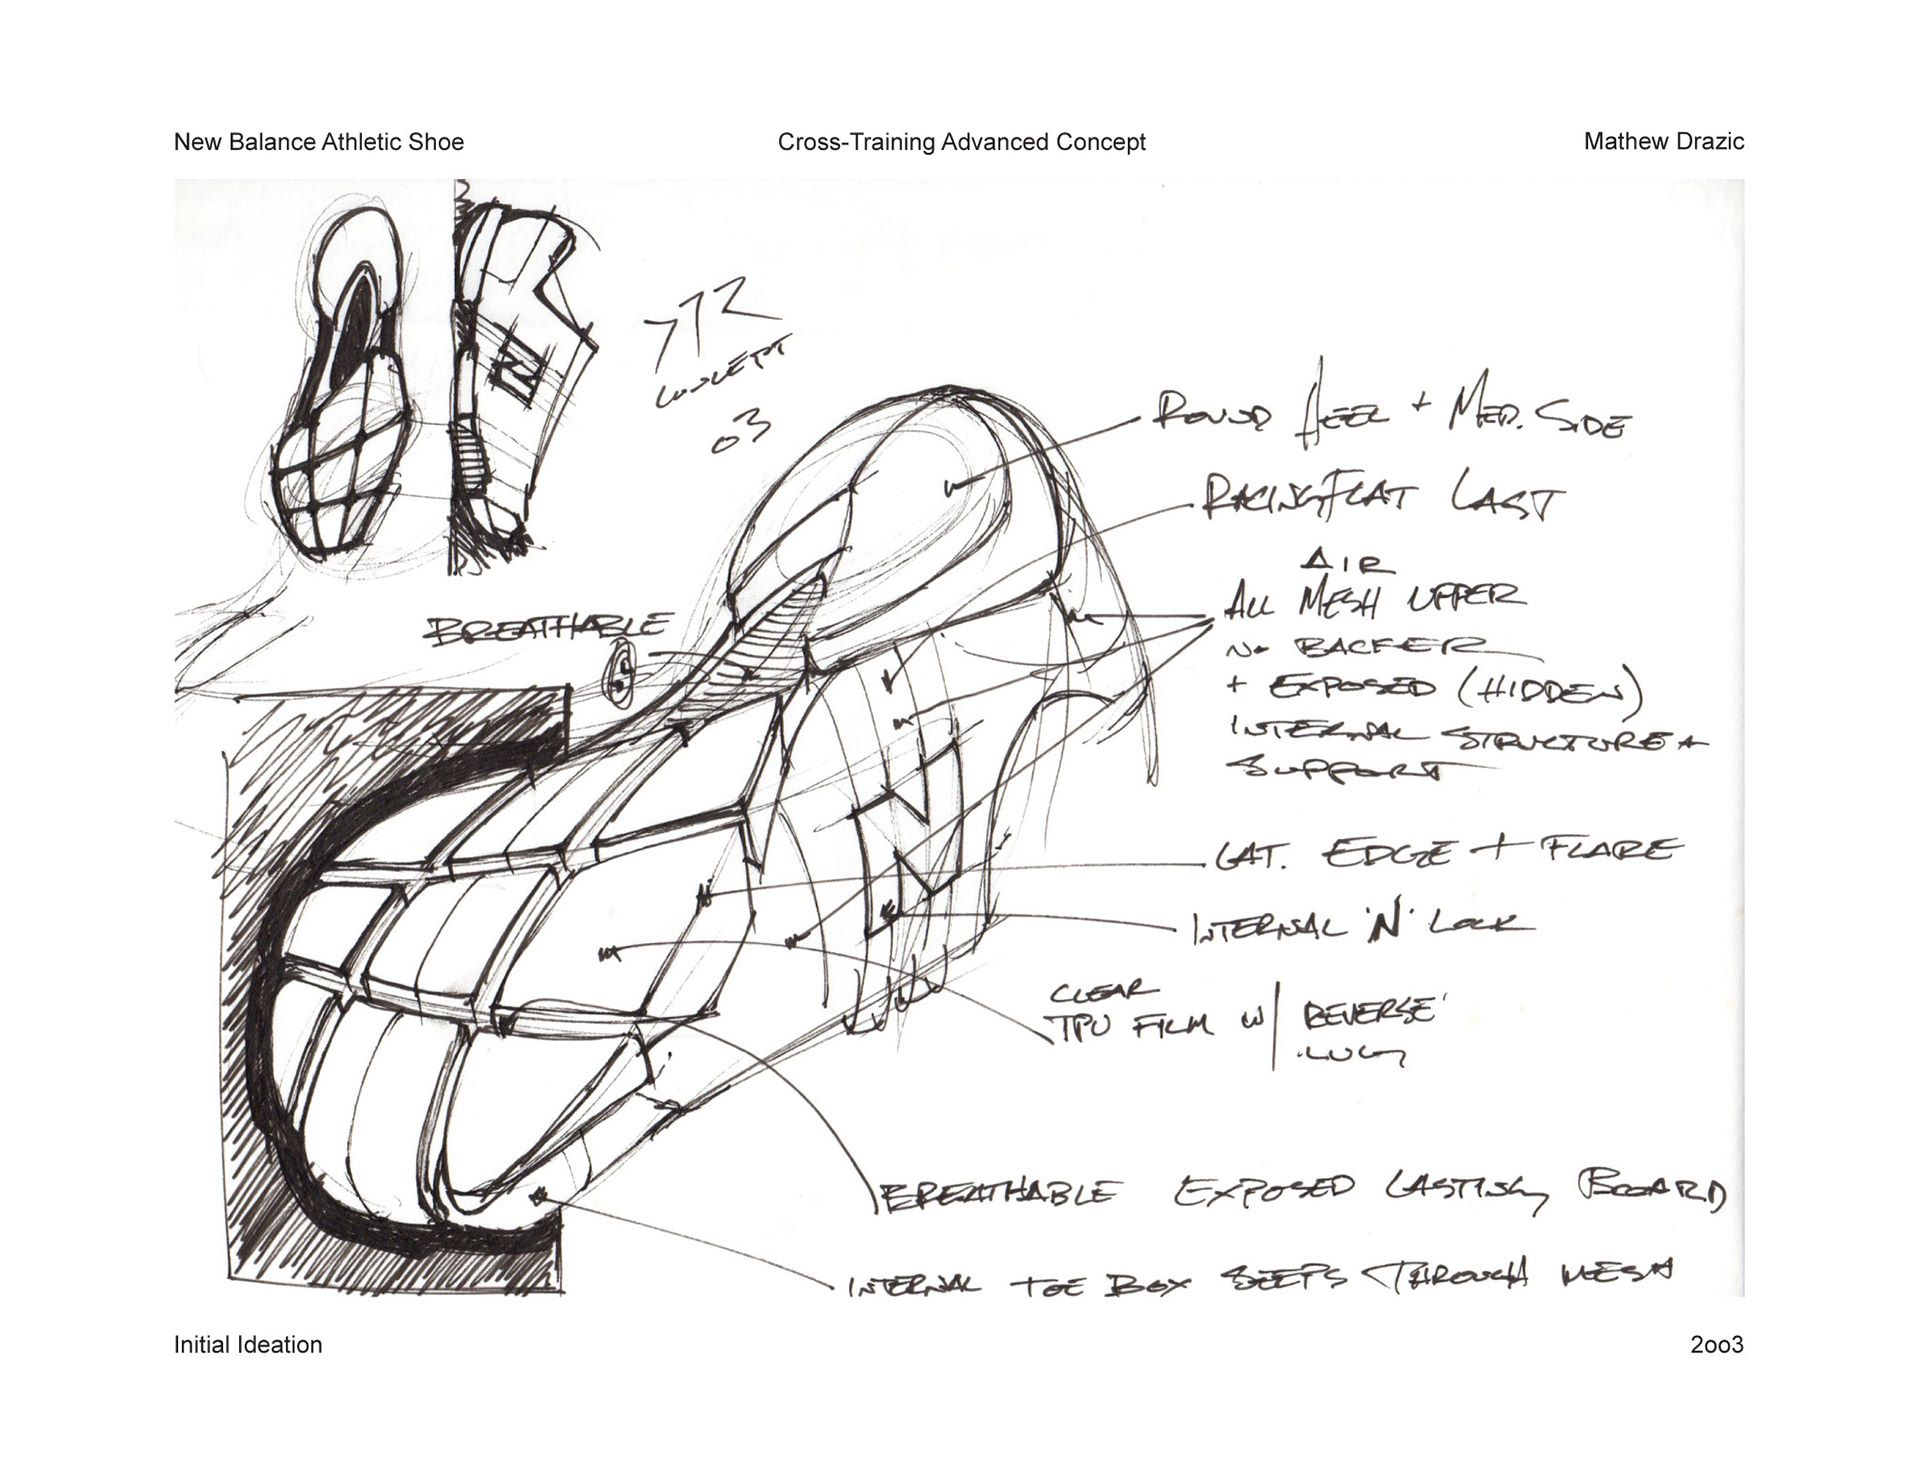 New Balance Athletic Shoe
Cross-Training Advanced Concept
Mathew Drazic
CONCEPT
03
ROUND HEEL + MED. SIDE
RACING FLAT LAST
AIR
ALL MESH UPPER
NO BACKER
+ EXPOSED (HIDDEN)
INTERNAL STRUCTURE +
SUPPORT
BREATHABLE
N
LAT. EDGE + FLARE
INTERNAL 'N' LOCK
CLEAR
TPU FILM W/ REVERSE'
LUG
BREATHABLE EXPOSED LASTING BOARD
INTERNAL TOE BOX SEEPS THROUGH MESH
Initial Ideation
2oo3